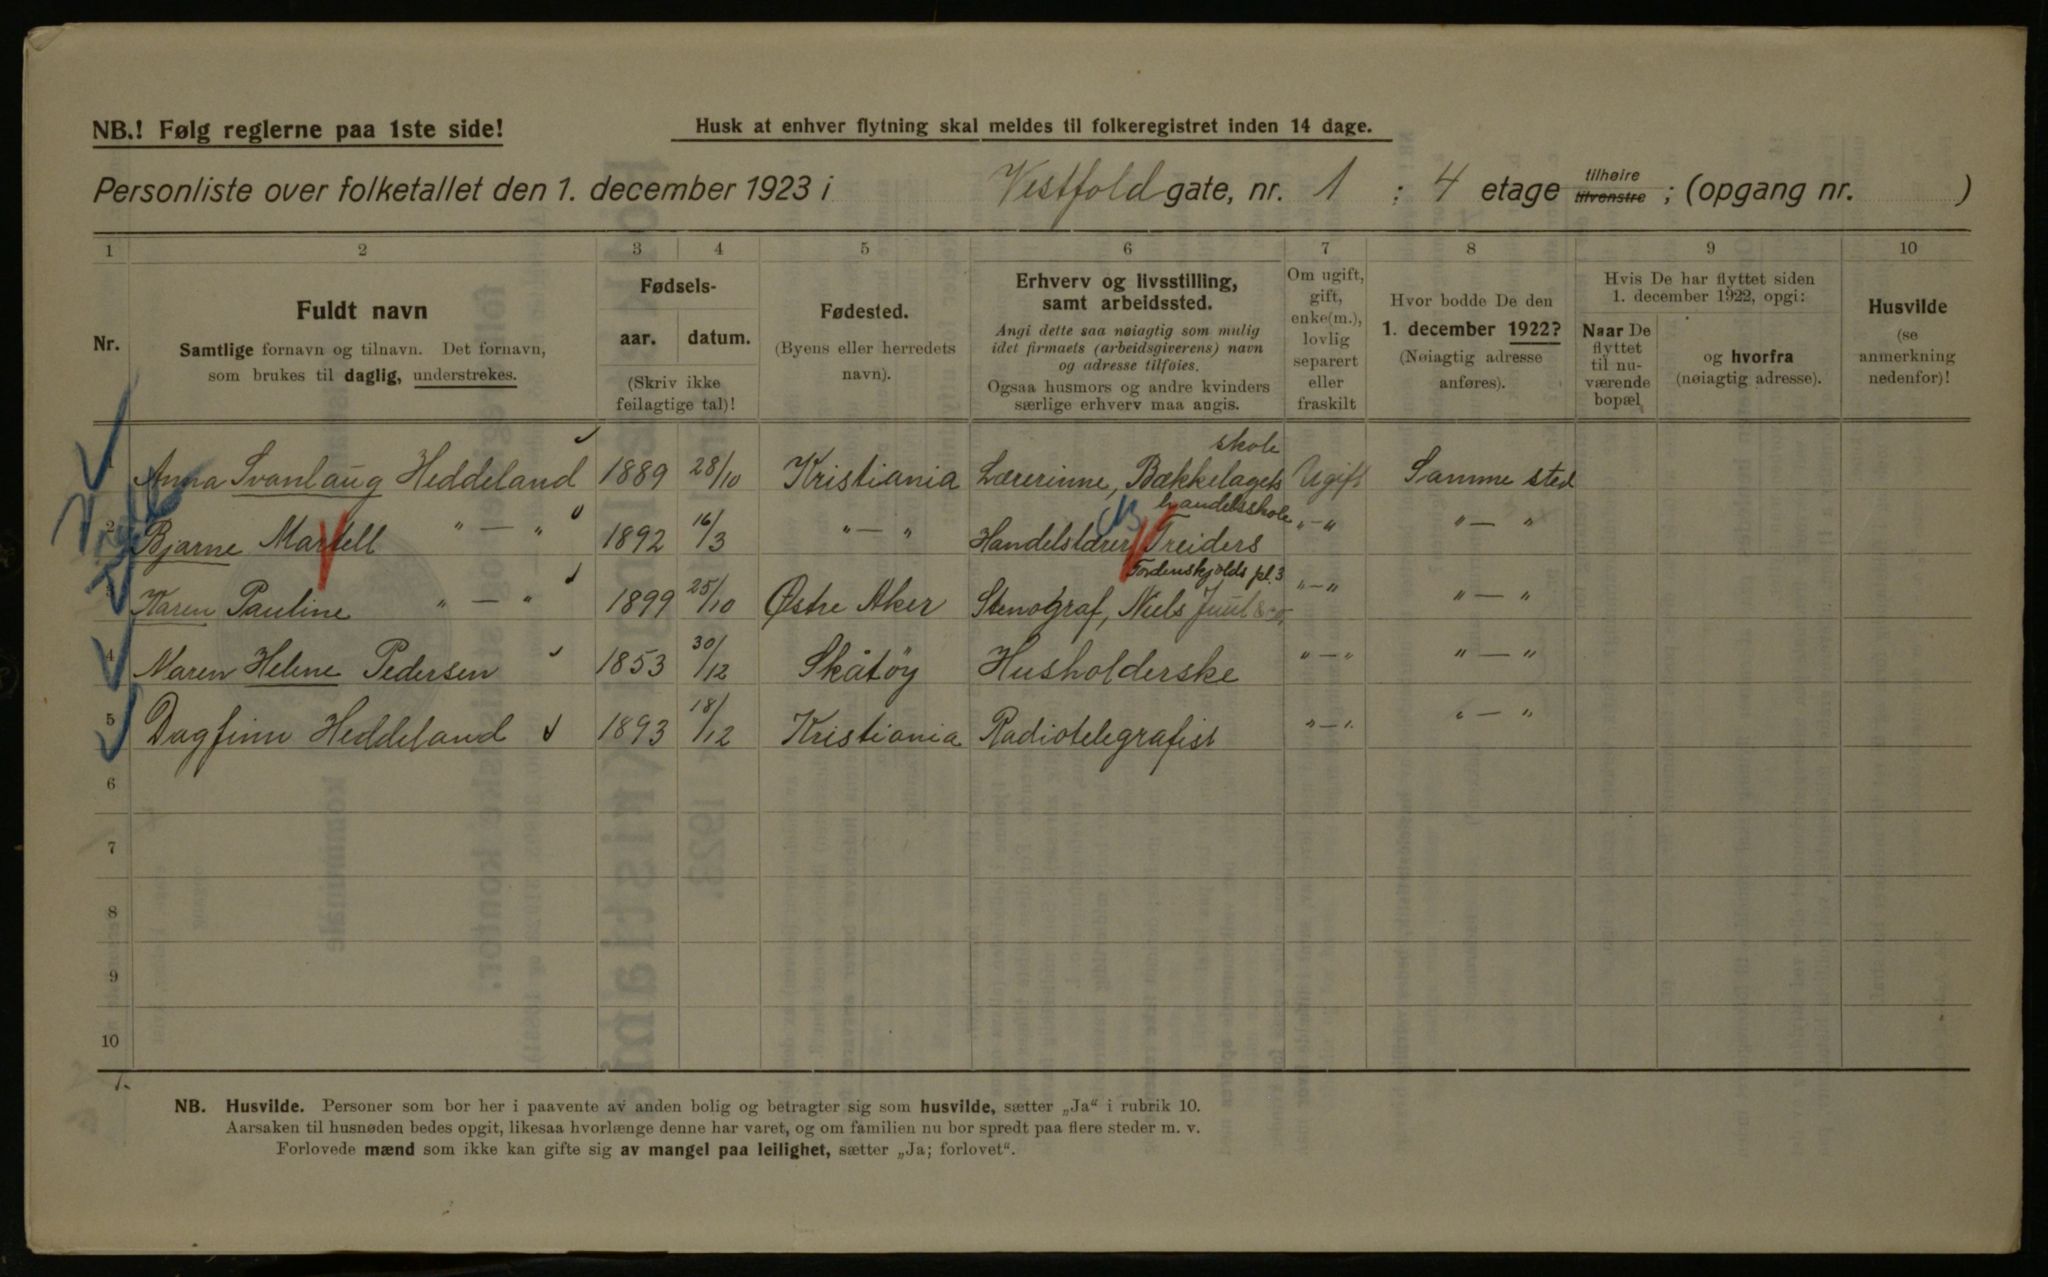 NB.! Følg reglerne paa 1ste side!
Husk at enhver flytning skal meldes til folkeregistret inden 14 dage.
Personliste over folketallet den 1. december 1923 i Vestfold gate, nr. 1 ; 4 etage tilhøire tilvenstre ; (opgang nr. )
1 2 3 4 5 6 7 8 9 10
Nr.
Fuldt navn
Samtlige fornavn og tilnavn. Det fornavn,
som brukes til daglig, understrekes.
Fødsels-
aar. datum.
(Skriv ikke
feilagtige tal)!
Fødested.
(Byens eller herredets
navn).
Erhverv og livsstilling,
samt arbeidssted.
Angi dette saa nøiagtig som mulig
idet firmaets (arbeidsgiverens) navn
og adresse tilføies.
Ogsaa husmors og andre kvinders
særlige erhverv maa angis.
Om ugift,
gift,
enke(m.),
lovlig
separert
eller
fraskilt
Hvor bodde De den
1. december 1922?
(Nøiagtig adresse
anføres).
Hvis De har flyttet siden
1. december 1922, opgi:
Naar De
flyttet
til nu-
værende
bopæl
og hvorfra
(nøiagtig adresse).
Husvilde
(se
anmerkning
nedenfor)!
skole
1 Anna Svanlaug Heddeland 1889 28/10 Kristiania Lærerinne, Bækkelagets Ugift Samme sted
handelsskole
2 Bjarne Martell " — " 1892 16/3 " — " Handelslærer Treiders " — " " — "
Tordenskjolds pl. 3
3 Karen Pauline " — " 1899 25/10 Østre Aker Stenograf, Niels Juul & co. " — " " — "
4 Maren Helene Pedersen 1853 30/12 Skåtøy Husholderske " — " " — "
5 Dagfinn Heddeland 1893 18/12 Kristiania Radiotelegrafist " — " " — "
6
7
8
9
10
NB. Husvilde. Personer som bor her i paavente av anden bolig og betragter sig som husvilde, sætter „Ja“ i rubrik 10.
Aarsaken til husnøden bedes opgit, likesaa hvorlænge denne har varet, og om familien nu bor spredt paa flere steder m. v.
Forlovede mænd som ikke kan gifte sig av mangel paa leilighet, sætter „Ja; forlovet“.